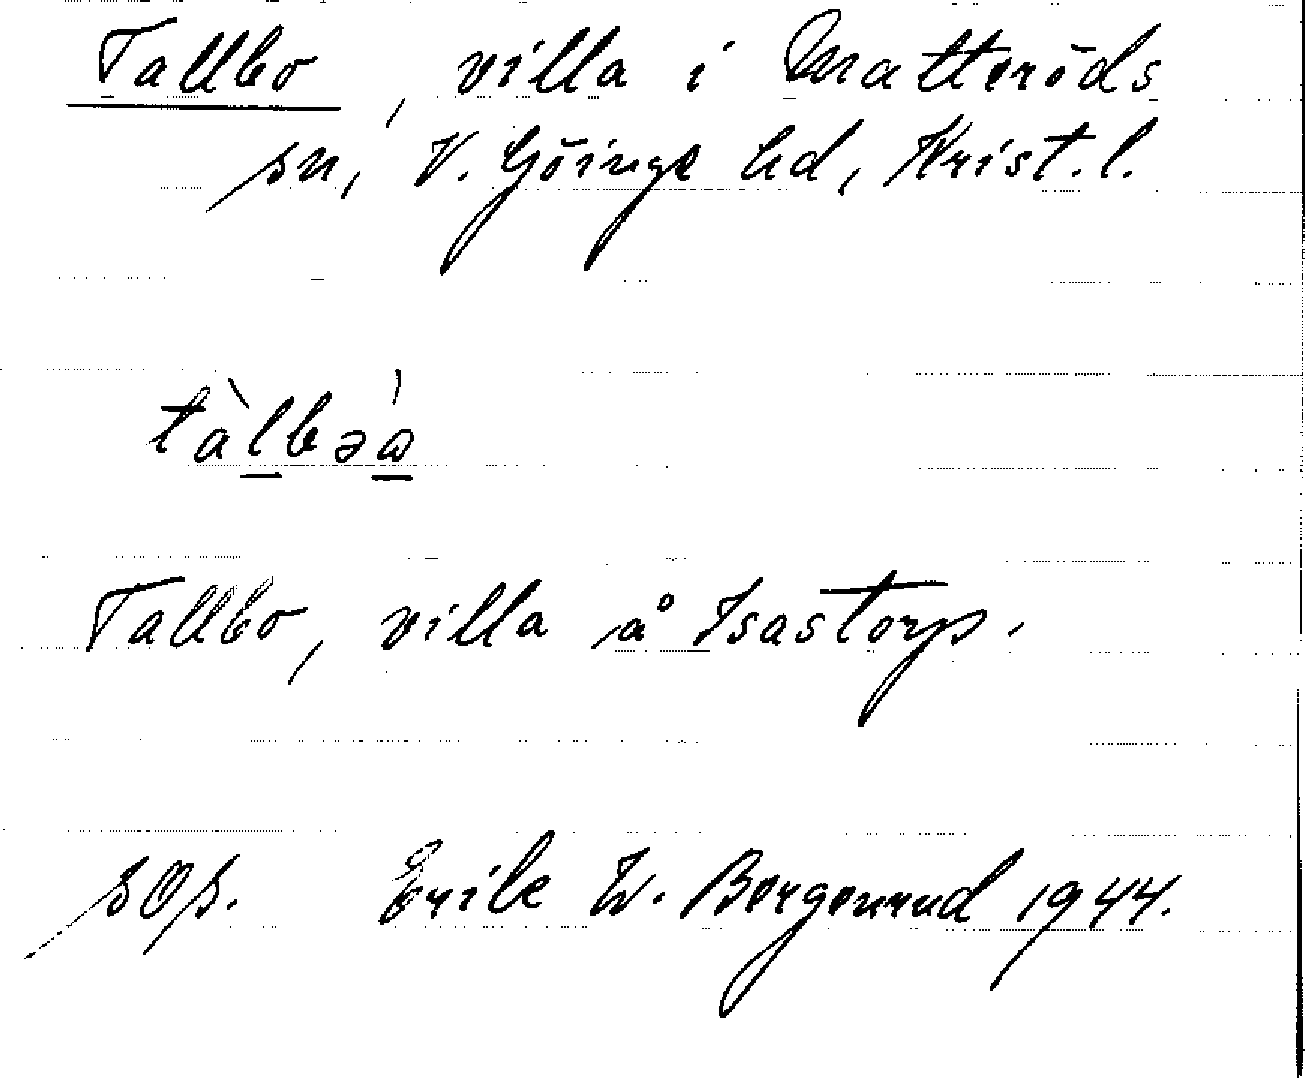 Tallbo, villa i Matteröds
sn, V. Göinge hd, Krist. l.
tàlbəò
Tallbo, villa å Isastorp.
sOp. Erik W. Bergenrud 1944.